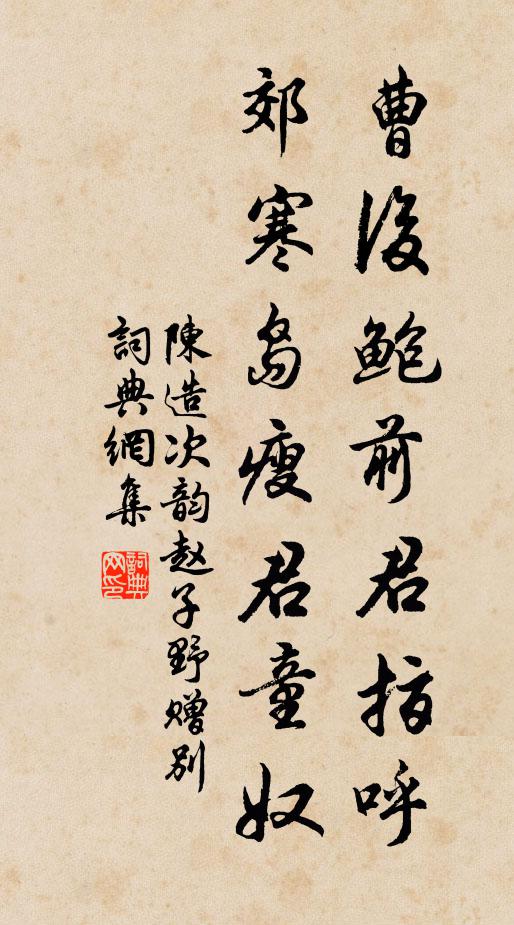 曹後鮑前君指呼
郊寒島瘦君童奴
陳造次韵赵子野贈別
詞典網集
詞典网印